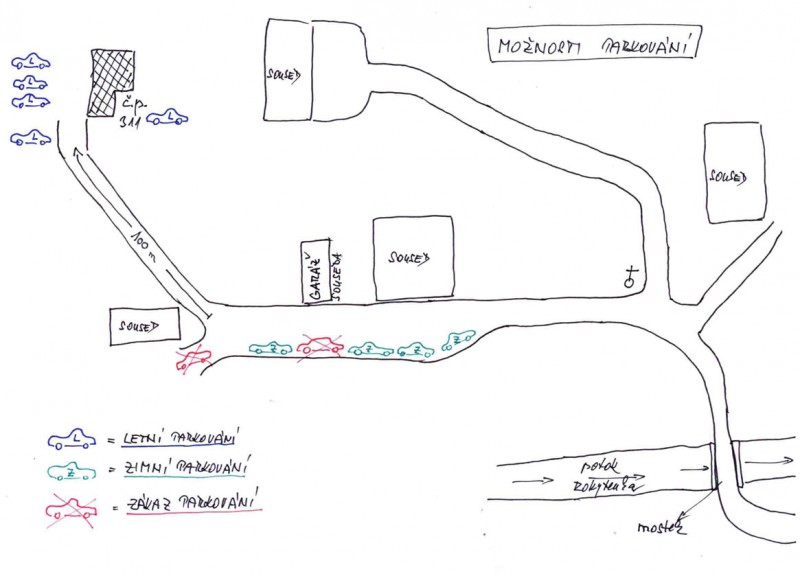 MOŽNOSTI PARKOVÁNÍ
SOUSED
SOUSED
L
L
L
L
L
č.p.
311
100 m
GARÁŽ
SOUSEDA
SOUSED
SOUSED
Z
Z
Z
Z
L = LETNÍ PARKOVÁNÍ
Z = ZIMNÍ PARKOVÁNÍ
= ZÁKAZ PARKOVÁNÍ
potok
Rokytenka
mostek